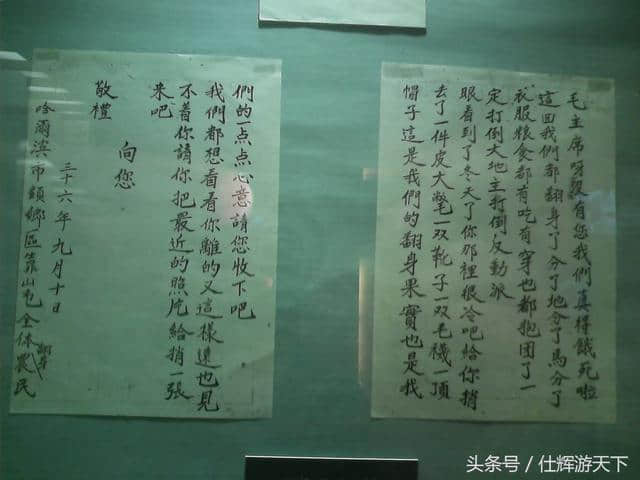 毛主席呀没有您我們真得餓死啦
這回我們都翻身了分了地分了馬分了
衣服粮食都有吃有穿也都抱团了一
定打倒大地主打倒反動派
眼看到了冬天了你那裡很冷吧給你捎
去了一件皮大氅一双靴子一双毛襪一頂
帽子這是我們的翻身果實也是我
們的一点点心意請您收下吧
我們都想看看你離的又這樣遠也見
不着你請你把最近的照片給捎一張
来吧
向您
敬禮
三十六年九月十日
哈爾濱市顧鄉區靠山屯全体農民
头条号／仕辉游天下